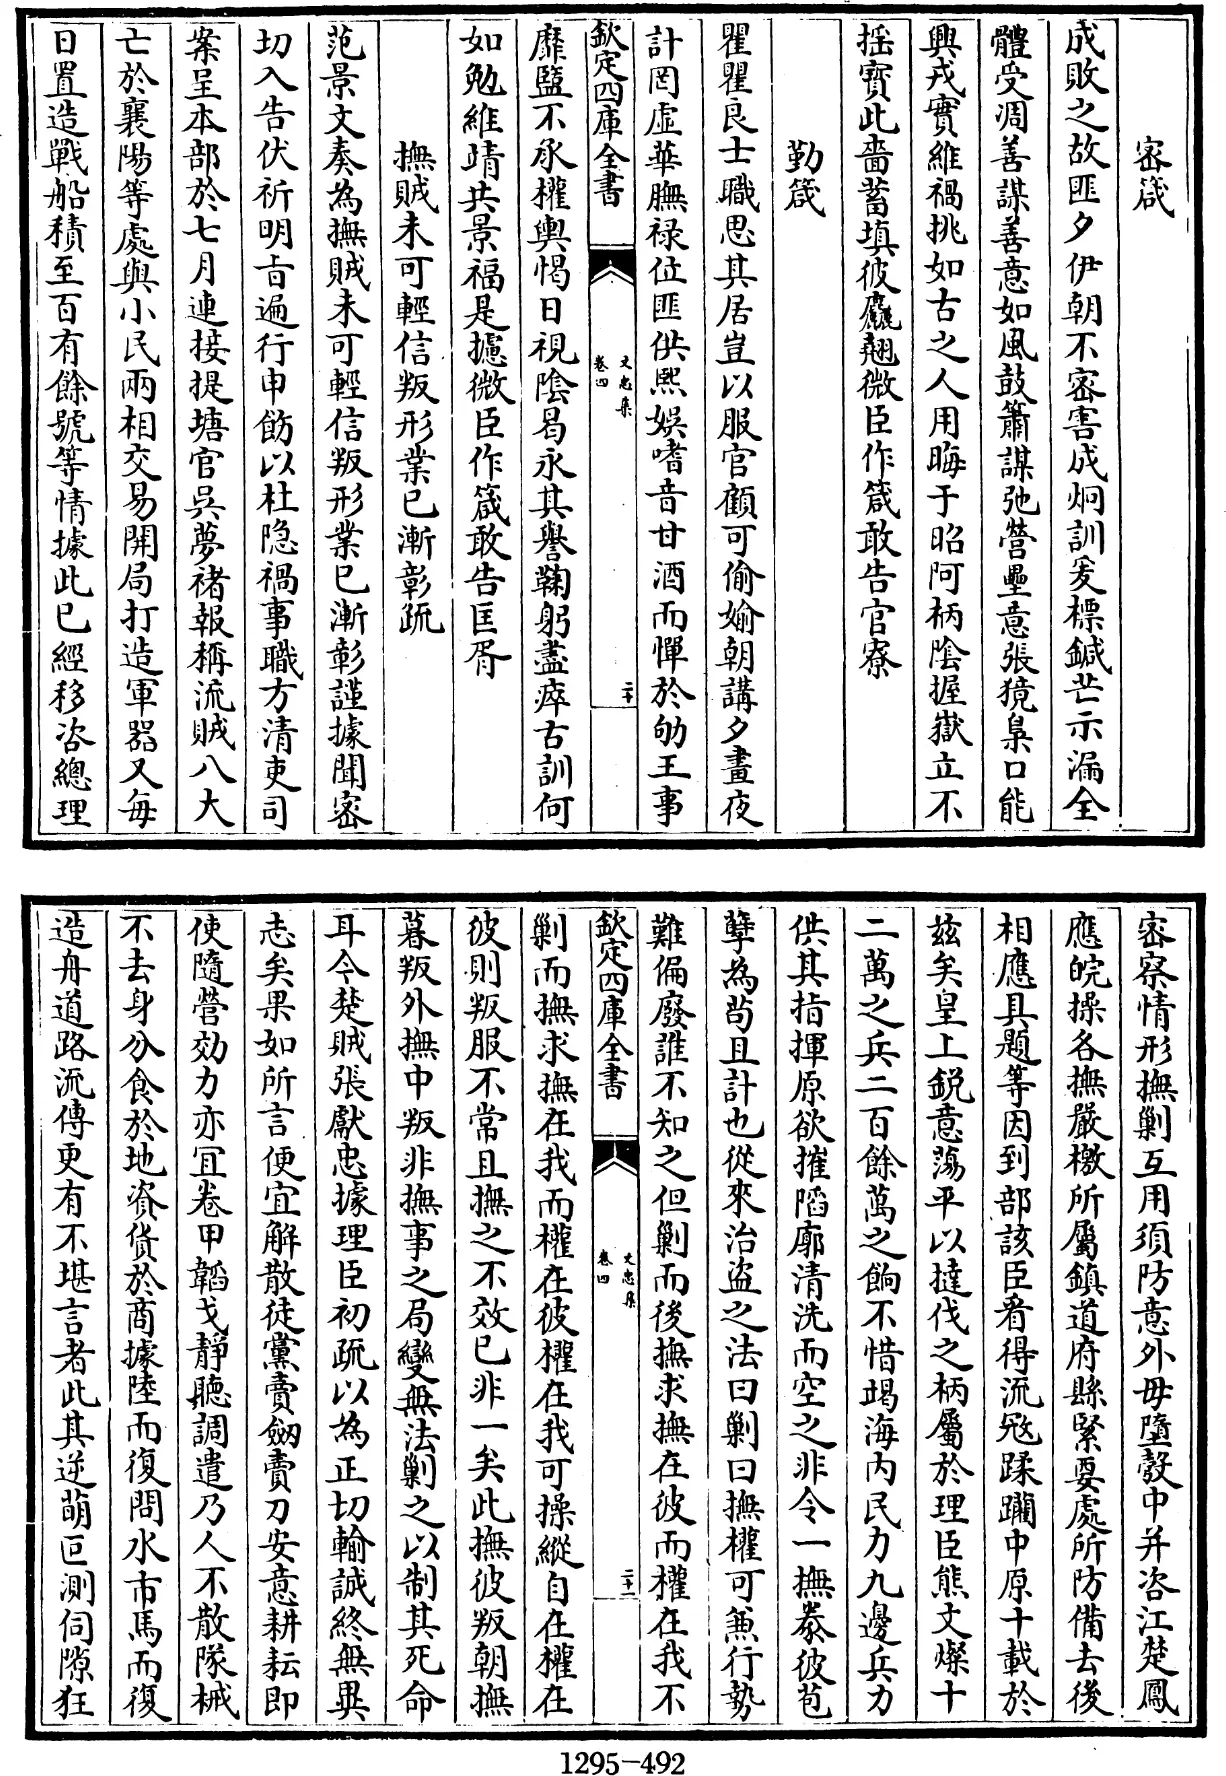 密箴
成敗之故匪夕伊朝不密害成炯訓爰標鍼芒示漏全
體受凋善謀善意如風鼓簫謀弛營壘意張獍梟口能
興戎實維禍挑如古之人用晦于昭阿柄陰握嶽立不
搖寳此嗇蓄填彼麤翹微臣作箴敢告官寮
勤箴
瞿瞿良士職思其居豈以服官顧可偷媮朝講夕畫夜
計罔虛華膴禄位匪供熙娛嗜音甘酒而憚於劬王事
欽定四庫全書
文忠集
卷四
二十
靡盬不承權輿愒日視陰曷永其譽鞠躬盡瘁古訓何
如勉維靖共景福是攄微臣作箴敢告匡胥
撫賊未可輕信叛形業已漸彰疏
范景文奏為撫賊未可輕信叛形業已漸彰謹據聞密
切入告伏祈明旨遍行申飭以杜隐禍事職方清吏司
案呈本部於七月連接提塘官吳夢禇報稱流賊八大
亡於襄陽等處與小民兩相交易開局打造軍器又每
日置造戰船積至百有餘號等情據此已經移咨總理
密察情形撫剿互用須防意外毋墮彀中并咨江楚鳳
應皖操各撫嚴檄所屬鎮道府縣緊要處所防備去後
相應具題等因到部該臣看得流冦蹂躪中原十載於
兹矣皇上鋭意蕩平以撻伐之柄屬於理臣熊文燦十
二萬之兵二百餘萬之餉不惜竭海内民力九邊兵力
供其指揮原欲摧陷廓清洗而空之非令一撫豢彼苞
孽為苟且計也從來治盜之法曰剿曰撫權可兼行勢
難偏廢誰不知之但剿而後撫求撫在彼而權在我不
欽定四庫全書
文忠集
卷四
二十一
剿而撫求撫在我而權在彼權在我可操縱自在權在
彼則叛服不常且撫之不效已非一矣此撫彼叛朝撫
暮叛外撫中叛非撫事之局變無法剿之以制其死命
耳今楚賊張獻忠據理臣初疏以為正切輸誠終無異
志矣果如所言便宜解散徒黨賣劒賣刀安意耕耘即
使隨營効力亦宜卷甲韜戈靜聽調遣乃人不散隊械
不去身分食於地資貨於商據陸而復問水市馬而復
造舟道路流傳更有不堪言者此其逆萌叵測伺隙狂
1295-492